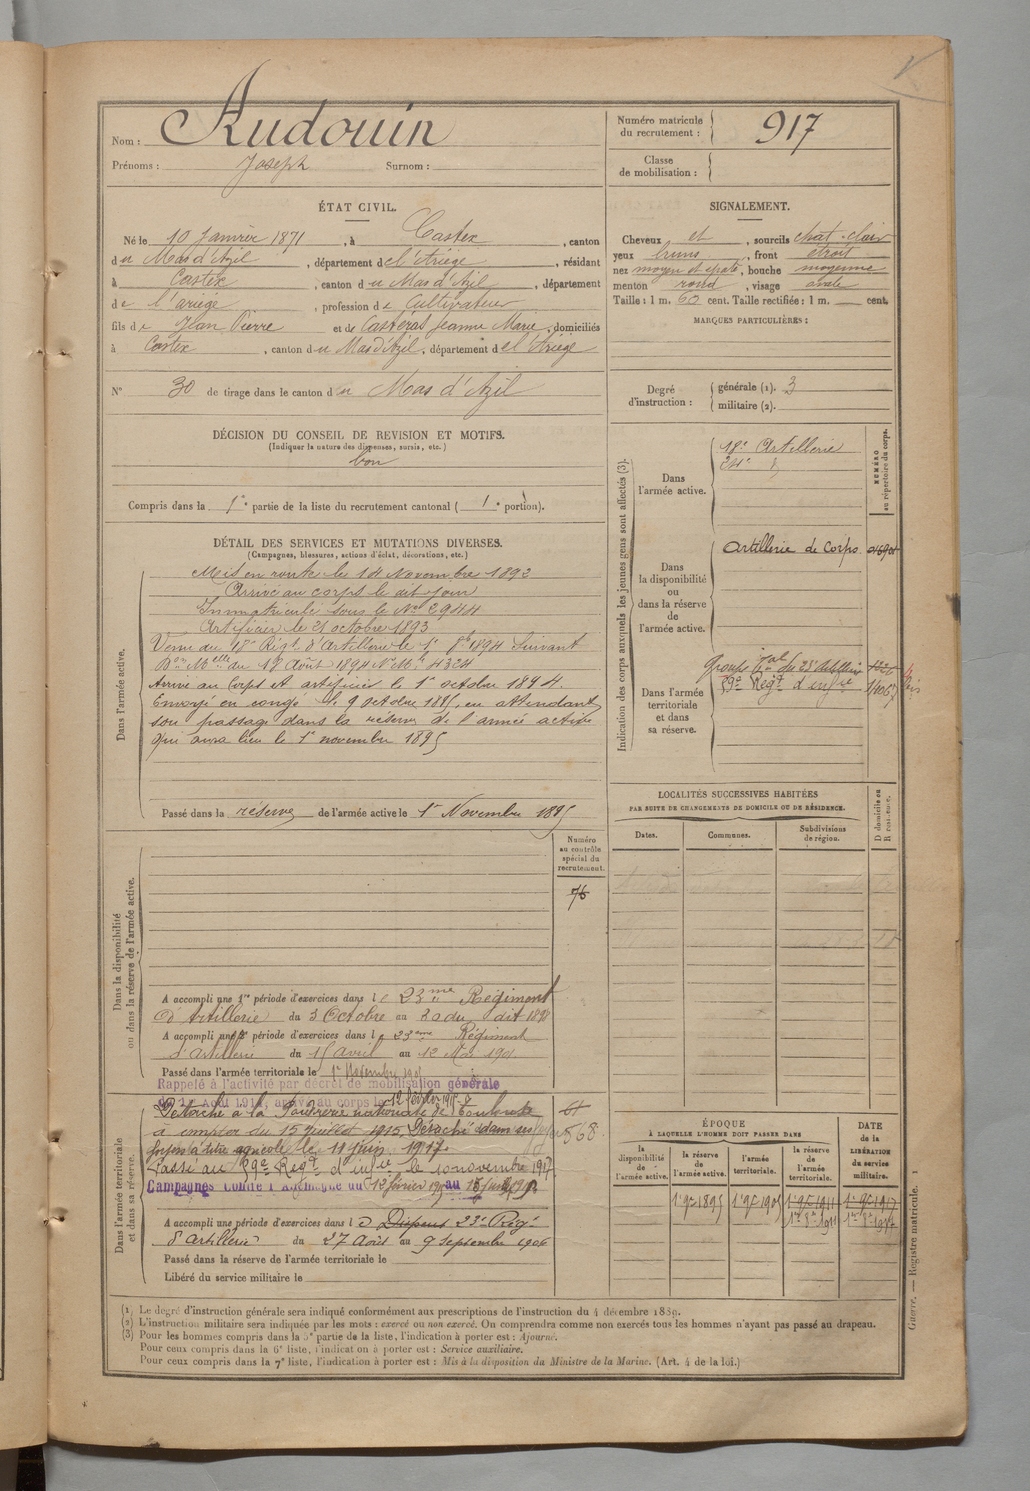 Nom : Audouin
Prénoms : Joseph Surnom :
Numéro matricule
du recrutement : 917
Classe
de mobilisation :
ÉTAT CIVIL.
Né le 10 Janvier 1871, à Castex, canton
du Mas d'Azil, département de l'Ariège, résidant
à Castex, canton du Mas d'Azil, département
de l'ariège, profession de Cultivateur
fils de Jean Pierre et de Casteras Jeanne Marie, domiciliés
à Castex, canton du Mas d'Azil, département de l'Ariège
N° 30 de tirage dans le canton du Mas d'Azil
SIGNALEMENT.
Cheveux et, sourcils chat-clair
yeux bruns, front étroit
nez moyen et épaté, bouche moyenne
menton rond, visage ovale
Taille : 1 m. 60 cent. Taille rectifiée : 1 m. cent.
MARQUES PARTICULIÈRES :
Degré
d'instruction :
générale (1). 3
militaire (2).
DÉCISION DU CONSEIL DE REVISION ET MOTIFS.
(Indiquer la nature des dispenses, sursis, etc.)
bon
Compris dans la 1e partie de la liste du recrutement cantonal (1e portion).
DÉTAIL DES SERVICES ET MUTATIONS DIVERSES.
(Campagnes, blessures, actions d'éclat, décorations, etc.)
Dans l'armée active.
Mis en route le 14 Novembre 1892
Arrivé au corps le dit jour
Immatriculé sous le No 2944
Artificier le 21 octobre 1893
Venu du 18e Régt d'Artillerie le 1r 8bre 1894 Suivant
Don Melle du 17 Août 1894 N° Mt 4324
Arrivé au Corps et artificier le 1r octobre 1894.
Envoyé en congé le 9 octobre 1895, en attendant
son passage dans la réserve de l'armée active
qui aura lieu le 1r novembre 1895
Passé dans la réserve de l'armée active le 1r Novembre 1895
Indication des corps auxquels les jeunes gens sont affectés (3).
NUMÉRO
au répertoire du corps.
Dans
l'armée active.
18e Artillerie
24e
Dans
la disponibilité
ou
dans la réserve
de
l'armée active.
Artillerie de Corps
Dans l'armée
territoriale
et dans
sa réserve.
Groupe tal du 23e Artillerie
59e Régt d'infie
LOCALITÉS SUCCESSIVES HABITÉES
PAR SUITE DE CHANGEMENTS DE DOMICILE OU DE RÉSIDENCE.
Dates. Communes. Subdivisions
de région.
D domicile ou
R résidence.
Dans la disponibilité
ou dans la réserve de l'armée active.
Numéro
au contrôle
spécial du
recrutement.
76
A accompli une 1re période d'exercices dans le 23me Régiment
d'Artillerie du 3 Octobre au 30 du dit 1898
A accompli une 2e période d'exercices dans le 23eme Régiment
d'artillerie du 15 avril au 12 Mai 1901
Passé dans l'armée territoriale le 1r Novembre 1905
Rappelé à l'activité par décret de mobilisation générale
du 1er Août 1914, arrivé au corps le 12 février 1915
Dans l'armée territoriale
et dans sa réserve.
Détaché à la Poudrerie nationale de Toulouse
à compter du 15 juillet 1915, Détaché dans ses
foyers à titre agricole le 11 juin 1917.
Passé au 59e Régt d'infie le 10 novembre 1917
Campagnes contre l'Allemagne du 12 février 1915 au
568
A accompli une période d'exercices dans le Dispensé 23e Régt
d'artillerie du 27 Août au 9 Septembre 1906
Passé dans la réserve de l'armée territoriale le
Libéré du service militaire le
ÉPOQUE
À LAQUELLE L'HOMME DOIT PASSER DANS
la
disponibilité
de
l'armée active.
la réserve
de
l'armée active.
l'armée
territoriale.
la réserve
de
l'armée
territoriale.
DATE
de la
LIBÉRATION
du service
militaire.
1r 9bre 1895 1r 9bre 1905 1r 9bre 1911 1r 9bre 1917
1r 8bre 1911 1r 8bre 1917
(1) Le degré d'instruction générale sera indiqué conformément aux prescriptions de l'instruction du 4 décembre 1889.
(2) L'instruction militaire sera indiquée par les mots : exercé ou non exercé. On comprendra comme non exercés tous les hommes n'ayant pas passé au drapeau.
(3) Pour les hommes compris dans la 5e partie de la liste, l'indication à porter est : Ajourné.
Pour ceux compris dans la 6e liste, l'indication à porter est : Service auxiliaire.
Pour ceux compris dans la 7e liste, l'indication à porter est : Mis à la disposition du Ministre de la Marine. (Art. 4 de la loi.)
Guerre. — Registre matricule. 1